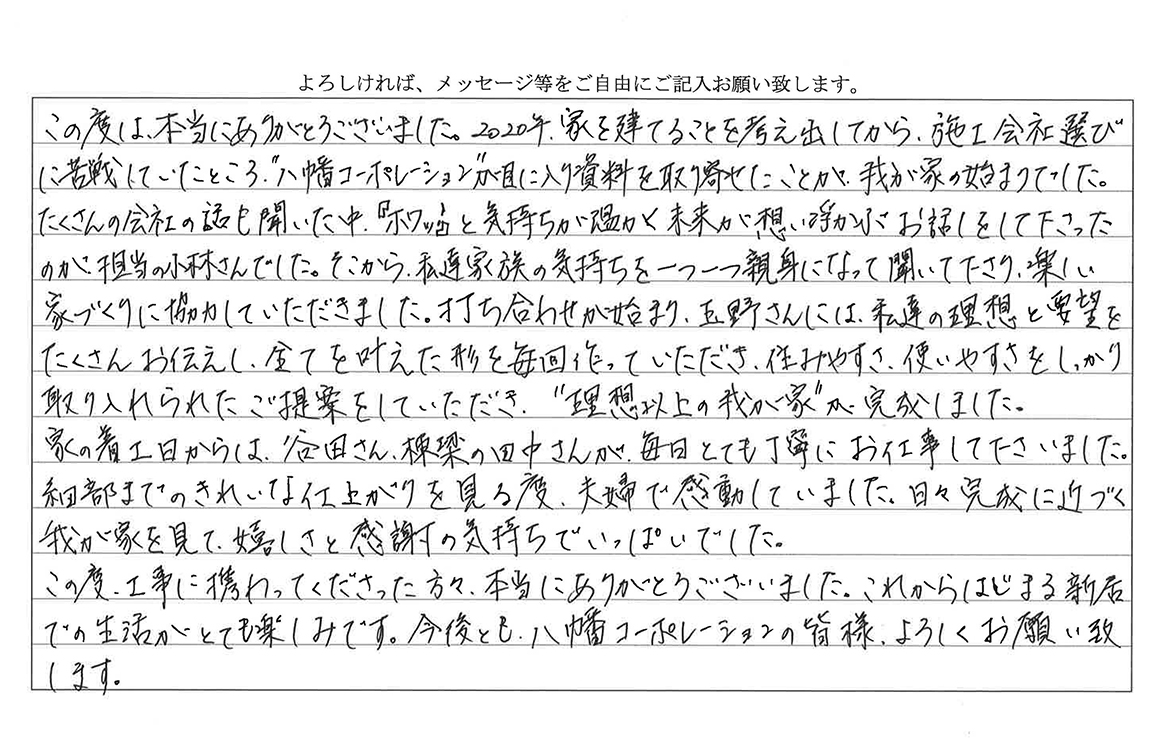 よろしければ、メッセージ等をご自由にご記入お願い致します。
この度は、本当にありがとうございました。2020年、家を建てることを考え出してから、施工会社選び
に苦戦していたところ、"八幡コーポレーション"が目に入り資料を取り寄せたことが、我が家の始まりでした。
たくさんの会社の話も聞いた中、『ホワッ』と気持ちが温かく未来が想い浮かぶお話しをして下さった
のが、担当の小林さんでした。そこから、私達家族の気持ちを一つ一つ親身になって聞いて下さり、楽しい
家づくりに協力していただきました。打ち合わせが始まり、五野さんには、私達の理想と要望を
たくさんお伝えし、全てを叶えた形を毎回作っていただき、住みやすさ、使いやすさをしっかり
取り入れられたご提案をしていただき、"理想以上の我が家"が、完成しました。
家の着工日からは、谷田さん、棟梁の田中さんが、毎日とても丁寧にお仕事して下さいました。
細部までのきれいな仕上がりを見る度、夫婦で感動していました。日々完成に近づく
我が家を見て、嬉しさと感謝の気持ちでいっぱいでした。
この度、工事に携わってくださった方々、本当にありがとうございました。これからはじまる新居
での生活がとても楽しみです。今後とも、八幡コーポレーションの皆様、よろしくお願い致
します。